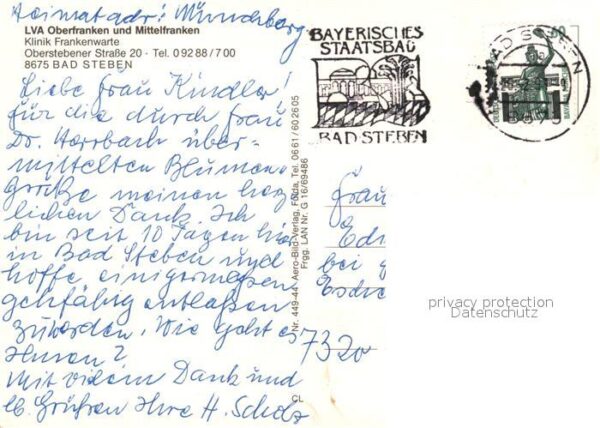 Heimatadr: Münchberg
LVA Oberfranken und Mittelfranken
Klinik Frankenwarte
Oberstebener Straße 20 · Tel. 0 92 88 / 7 00
8675 BAD STEBEN
Liebe Frau Kindler!
für die durch Frau
Dr. Horrbach über-
mittelten Blumen
Grüße meinen herz
lichen Dank. Ich
bin seit 10 Tagen hier
in Bad Steben und
hoffe einigermaßen
gehfähig entlaßen
zuwerden. Wie geht es
Ihnen?
Mit vielem Dank und
lb. Grüßen Ihre H. Scholz
Nr. 449-44 · Aero-Bild-Verlag, Fulda, Tel. 06 61 / 60 26 05
Frgg. LAN Nr. G 16/69486
CL
BAYERISCHES
STAATSBAD
BAD STEBEN
BAD STEBEN
Frau
bei
7320
privacy protection
Datenschutz